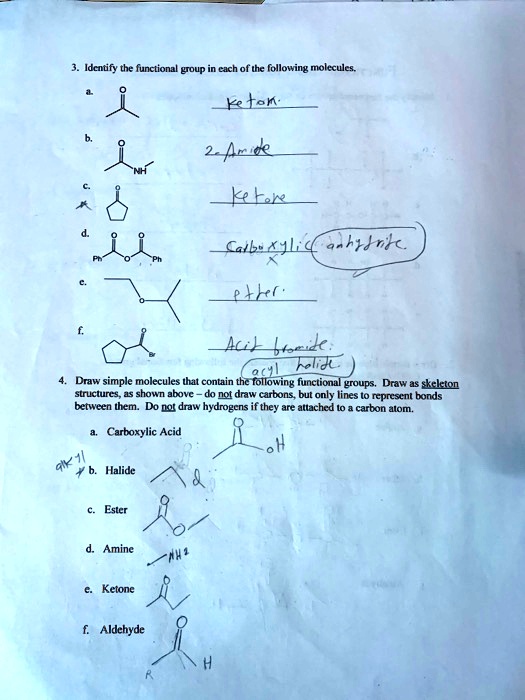 3. Identify the functional group in each of the following molecules.
a. O Keton.
b. O NH 2-Amide
c. O Ketone
d. O O Ph O Ph Carboxylic anhydride.
e. O ether.
f. O Br Acid bromide.
acyl halide
4. Draw simple molecules that contain the following functional groups. Draw as skeleton
structures, as shown above – do not draw carbons, but only lines to represent bonds
between them. Do not draw hydrogens if they are attached to a carbon atom.
a. Carboxylic Acid O OH
alkyl
b. Halide
c. Ester O O
d. Amine NH2
e. Ketone O
f. Aldehyde O
R H